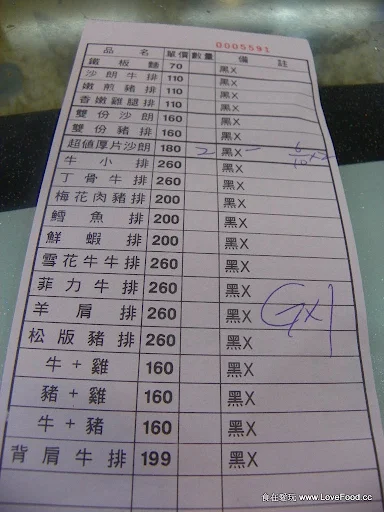 0005591
品名 單價 數量 備註
鐵板麵 70 黑X
沙朗牛排 110 黑X
嫩煎豬排 110 黑X
香嫩雞腿排 110 黑X
雙份沙朗 160 黑X
雙份豬排 160 黑X
超值厚片沙朗 180 2 黑X
牛小排 260 黑X
丁骨牛排 260 黑X
梅花肉豬排 200 黑X
鱈魚排 200 黑X
鮮蝦排 200 黑X
雪花牛牛排 260 黑X
菲力牛排 260 黑X
羊肩排 260 黑X
松版豬排 260 黑X
牛+雞 160 黑X
豬+雞 160 黑X
牛+豬 160 黑X
背肩牛排 199 黑X
食在愛玩 www.LoveFood.cc